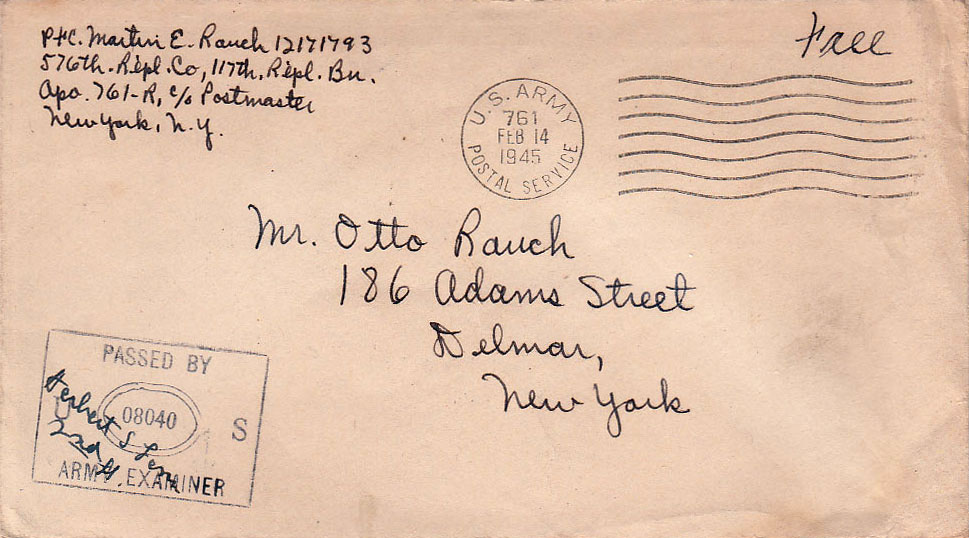 Pfc. Martin E. Rauch 12171793
576th. Repl. Co, 117th. Repl. Bn.
Apo. 761-R, c/o Postmaster
New York, N.Y.
Free
U.S. ARMY
761
FEB 14
1945
POSTAL SERVICE
Mr. Otto Rauch
186 Adams Street
Delmar,
New York
PASSED BY
U 08040 S
ARMY EXAMINER
Herbert S
2nd Lt.